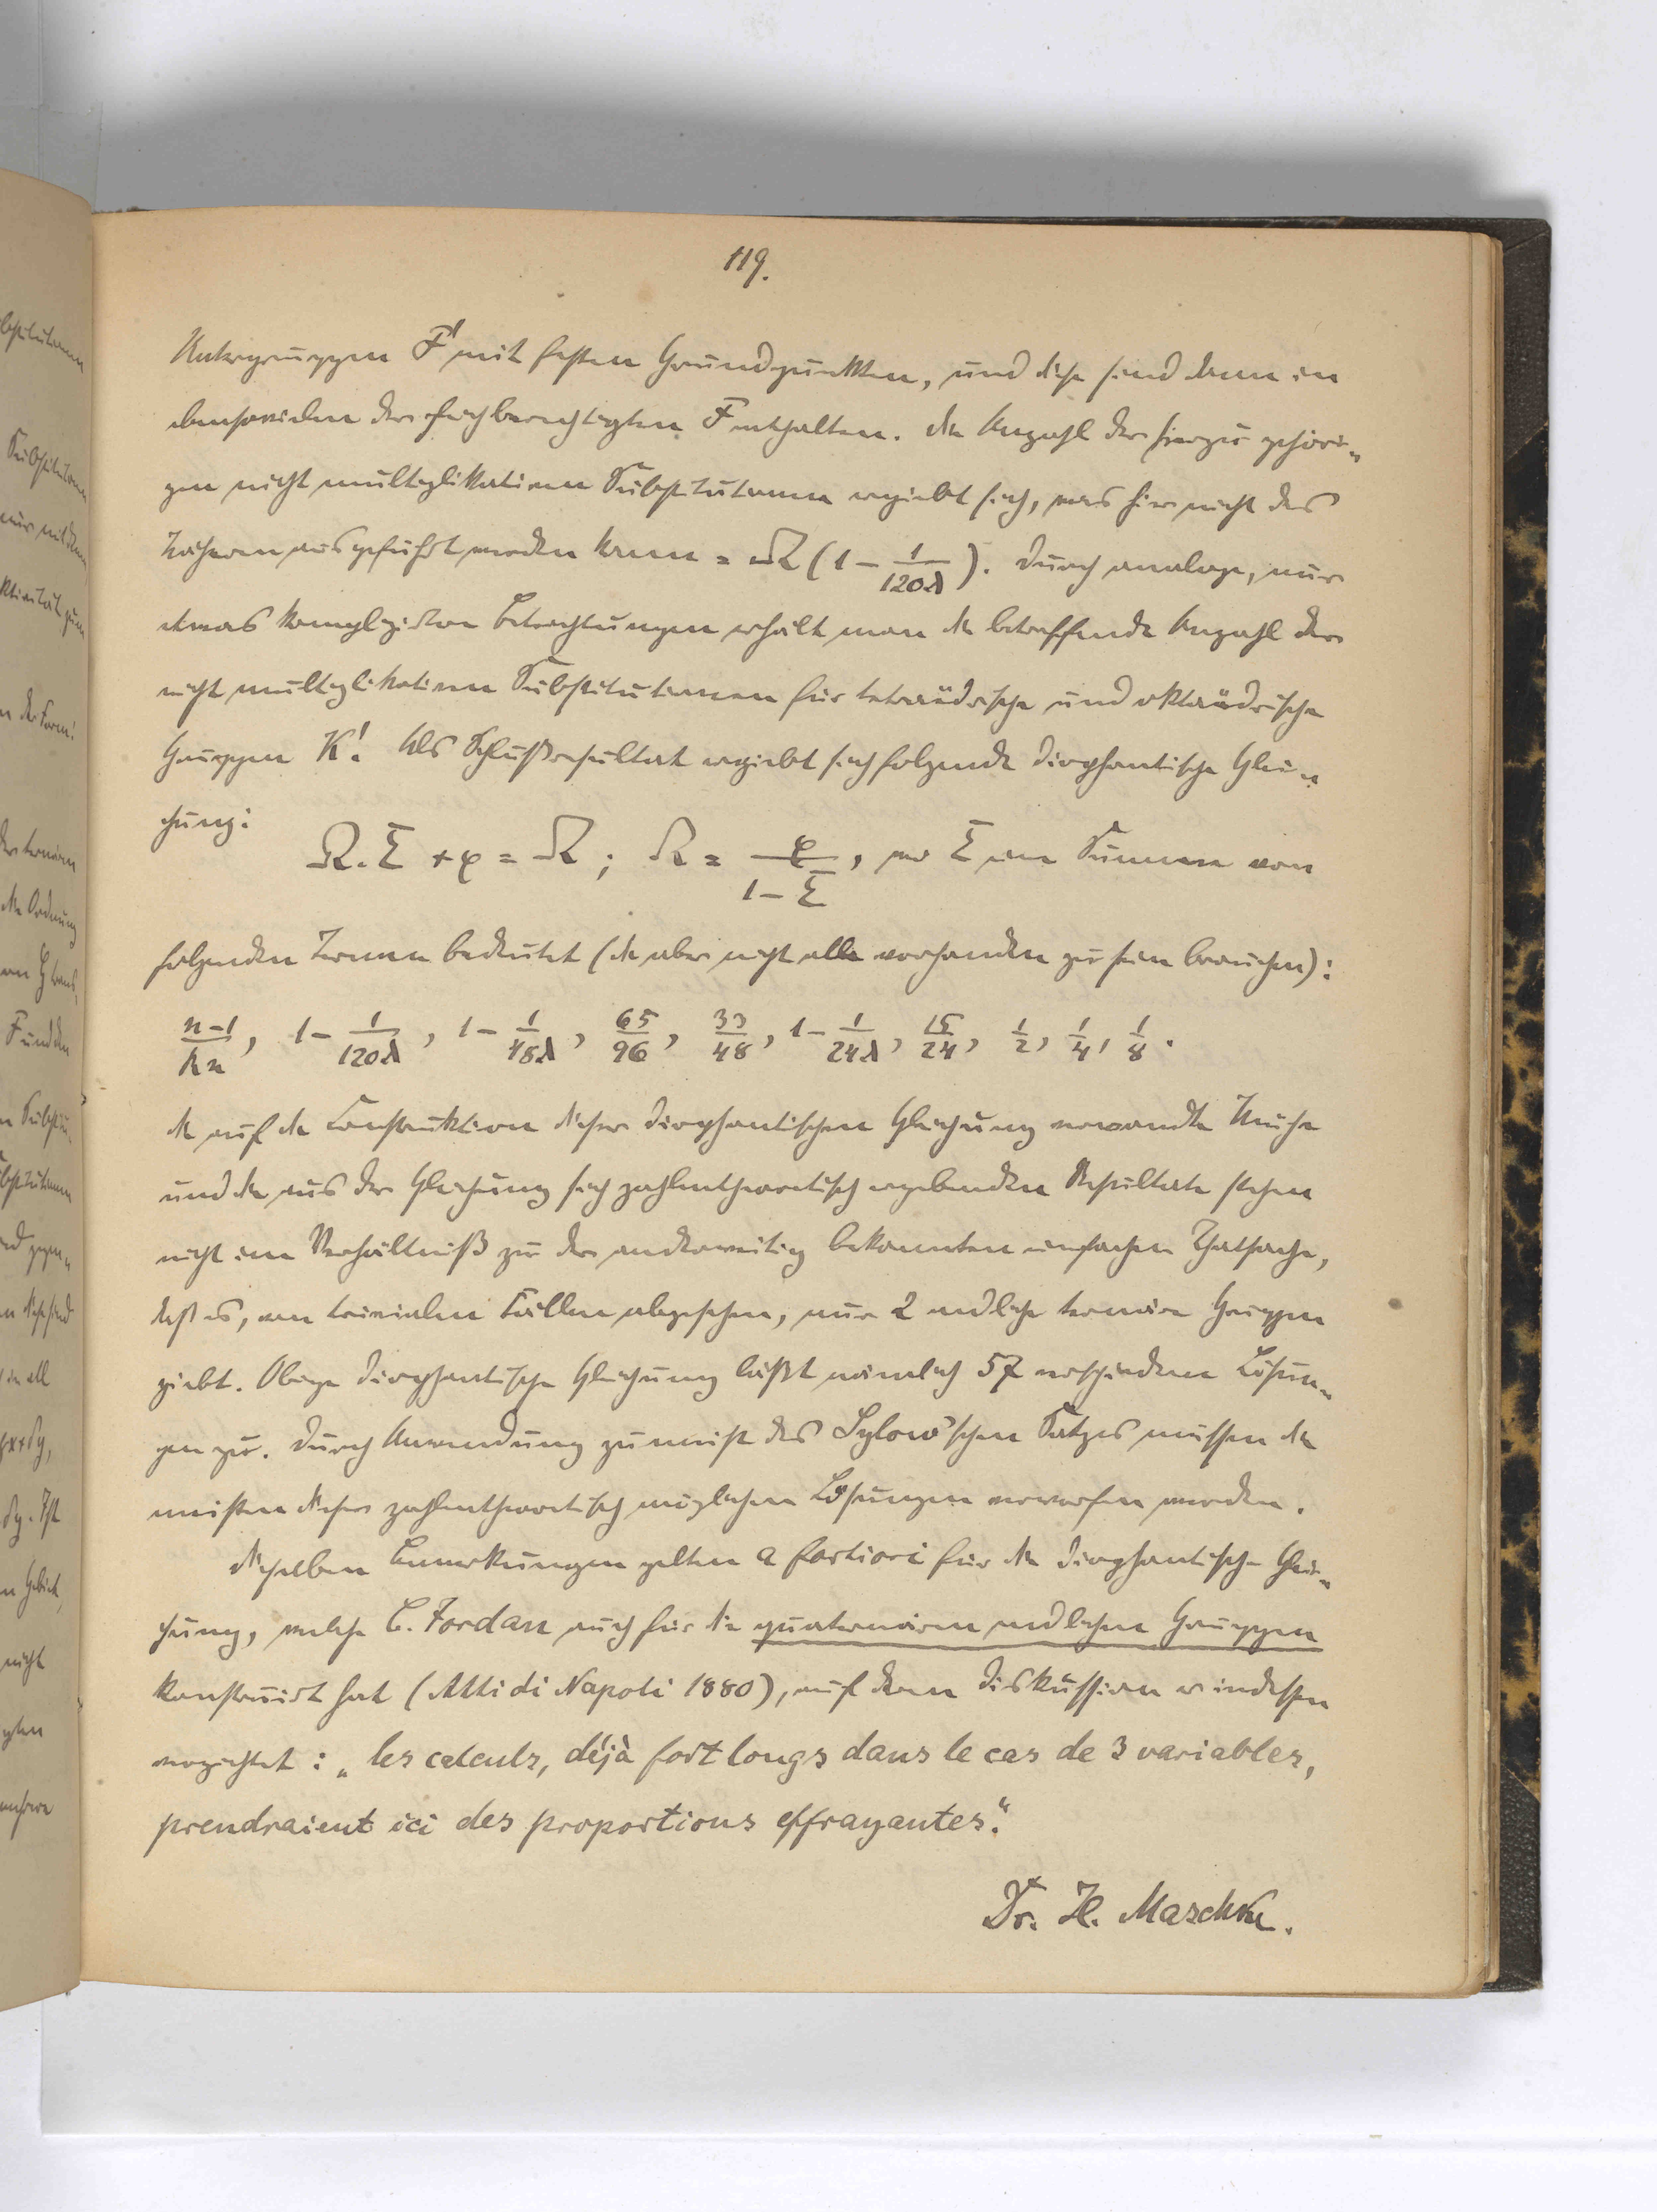 119.
Untergruppen F' mit festen Grundpunkten, und diese sind dann in
ebensovielen der gleichberechtigten F enthalten. Die Anzahl der hierzu gehöri-
gen nicht multiplikativen Substitutionen ergiebt sich, was hier nicht des
Näheren ausgeführt werden kann = Ω (1 - 1/120λ). Durch analoge, nur
etwas kompliziertere Betrachtungen erhält man die betreffende Anzahl der
nicht multiplikativen Substitutionen für tetraëdrische und oktaëdrische
Gruppen K'. Als Schlußresultat ergiebt sich folgende diophantische Glei-
chung:
Ω.Σ + φ = Ω; Ω = φ/(1-Σ), wo Σ eine Summe von
folgenden Termen bedeutet (die aber nicht alle vorhanden zu sein brauchen):
(n-1)/kn, 1 - 1/120λ, 1 - 1/48λ, 65/96, 33/48, 1 - 1/24λ, 15/24, 1/2, 1/4, 1/8.
Die auf die Construktion dieser diophantischen Gleichung verwandte Mühe
und die aus der Gleichung sich zahlentheoretisch ergebenden Resultate stehen
nicht im Verhältniß zu der anderweitig bekannten einfachen Thatsache,
daß es, von trivialen Fällen abgesehen, nur 2 endliche ternäre Gruppen
giebt. Obige diophantische Gleichung läßt nämlich 57 verschiedene Lösun-
gen zu. Durch Anwendung zumeist des Sylow'schen Satzes müssen die
meisten dieser zahlentheoretisch möglichen Lösungen verworfen werden.
Dieselben Bemerkungen gelten a fortiori für die diophantische Glei-
chung, welche C. Jordan auch für die quaternären endlichen Gruppen
konstruirt hat (Atti di Napoli 1880), auf deren Diskussion er indessen
verzichtet: „les calculs, déjà fort longs dans le cas de 3 variables,
prendraient ici des proportions effrayantes."
Dr. H. Maschke.